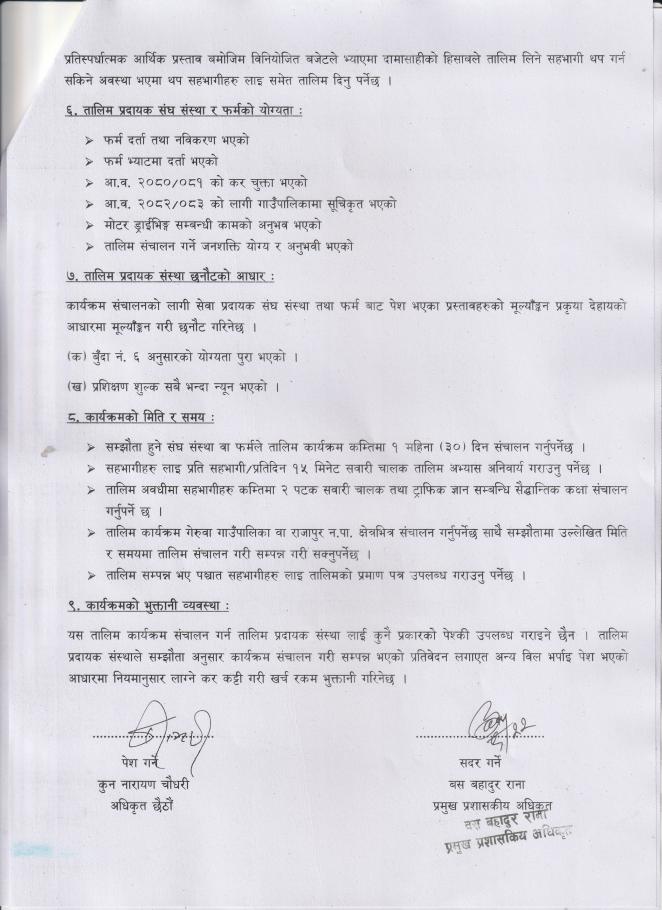 प्रतिस्पर्धात्मक आर्थिक प्रस्ताव बमोजिम विनियोजित बजेटले भ्याएमा दामासाहीको हिसावले तालिम लिने सहभागी थप गर्न
सकिने अवस्था भएमा थप सहभागीहरु लाइ समेत तालिम दिनु पर्नेछ ।
६. तालिम प्रदायक संघ संस्था र फर्मको योग्यता :
➢ फर्म दर्ता तथा नविकरण भएको
➢ फर्म भ्याटमा दर्ता भएको
➢ आ.व. २०८०/०८१ को कर चुक्ता भएको
➢ आ.व. २०८२/०८३ को लागी गाउँपालिकामा सूचिकृत भएको
➢ मोटर ड्राईभिङ्ग सम्बन्धी कामको अनुभव भएको
➢ तालिम संचालन गर्ने जनशक्ति योग्य र अनुभवी भएको
७. तालिम प्रदायक संस्था छनौटको आधार :
कार्यक्रम संचालनको लागी सेवा प्रदायक संघ संस्था तथा फर्म बाट पेश भएका प्रस्तावहरुको मूल्याँङ्कन प्रकृया देहायको
आधारमा मूल्याँङ्कन गरी छनौट गरिनेछ ।
(क) बुँदा नं. ६ अनुसारको योग्यता पुरा भएको ।
(ख) प्रशिक्षण शुल्क सबै भन्दा न्यून भएको ।
८. कार्यक्रमको मिति र समय :
➢ सम्झौता हुने संघ संस्था वा फर्मले तालिम कार्यक्रम कम्तिमा १ महिना (३०) दिन संचालन गर्नुपर्नेछ ।
➢ सहभागीहरु लाइ प्रति सहभागी/प्रतिदिन १५ मिनेट सवारी चालक तालिम अभ्यास अनिवार्य गराउनु पर्नेछ ।
➢ तालिम अवधीमा सहभागीहरु कम्तिमा २ पटक सवारी चालक तथा ट्राफिक ज्ञान सम्बन्धि सैद्धान्तिक कक्षा संचालन
गर्नुपर्ने छ ।
➢ तालिम कार्यक्रम गेरुवा गाउँपालिका वा राजापुर न.पा. क्षेत्रभित्र संचालन गर्नुपर्नेछ साथै सम्झौतामा उल्लेखित मिति
र समयमा तालिम संचालन गरी सम्पन्न गरी सक्नुपर्नेछ ।
➢ तालिम सम्पन्न भए पश्चात सहभागीहरु लाइ तालिमको प्रमाण पत्र उपलब्ध गराउनु पर्नेछ ।
९. कार्यक्रमको भुक्तानी व्यवस्था :
यस तालिम कार्यक्रम संचालन गर्न तालिम प्रदायक संस्था लाई कुनै प्रकारको पेश्की उपलब्ध गराइने छैन । तालिम
प्रदायक संस्थाले सम्झौता अनुसार कार्यक्रम संचालन गरी सम्पन्न भएको प्रतिवेदन लगाएत अन्य विल भर्पाइ पेश भएको
आधारमा नियमानुसार लाग्ने कर कट्टी गरी खर्च रकम भुक्तानी गरिनेछ ।
पेश गर्ने
कुन नारायण चौधरी
अधिकृत छैठौं
सदर गर्ने
बस बहादुर राना
प्रमुख प्रशासकीय अधिकृत
बस बहादुर राना
प्रमुख प्रशासकिय अधिकृत